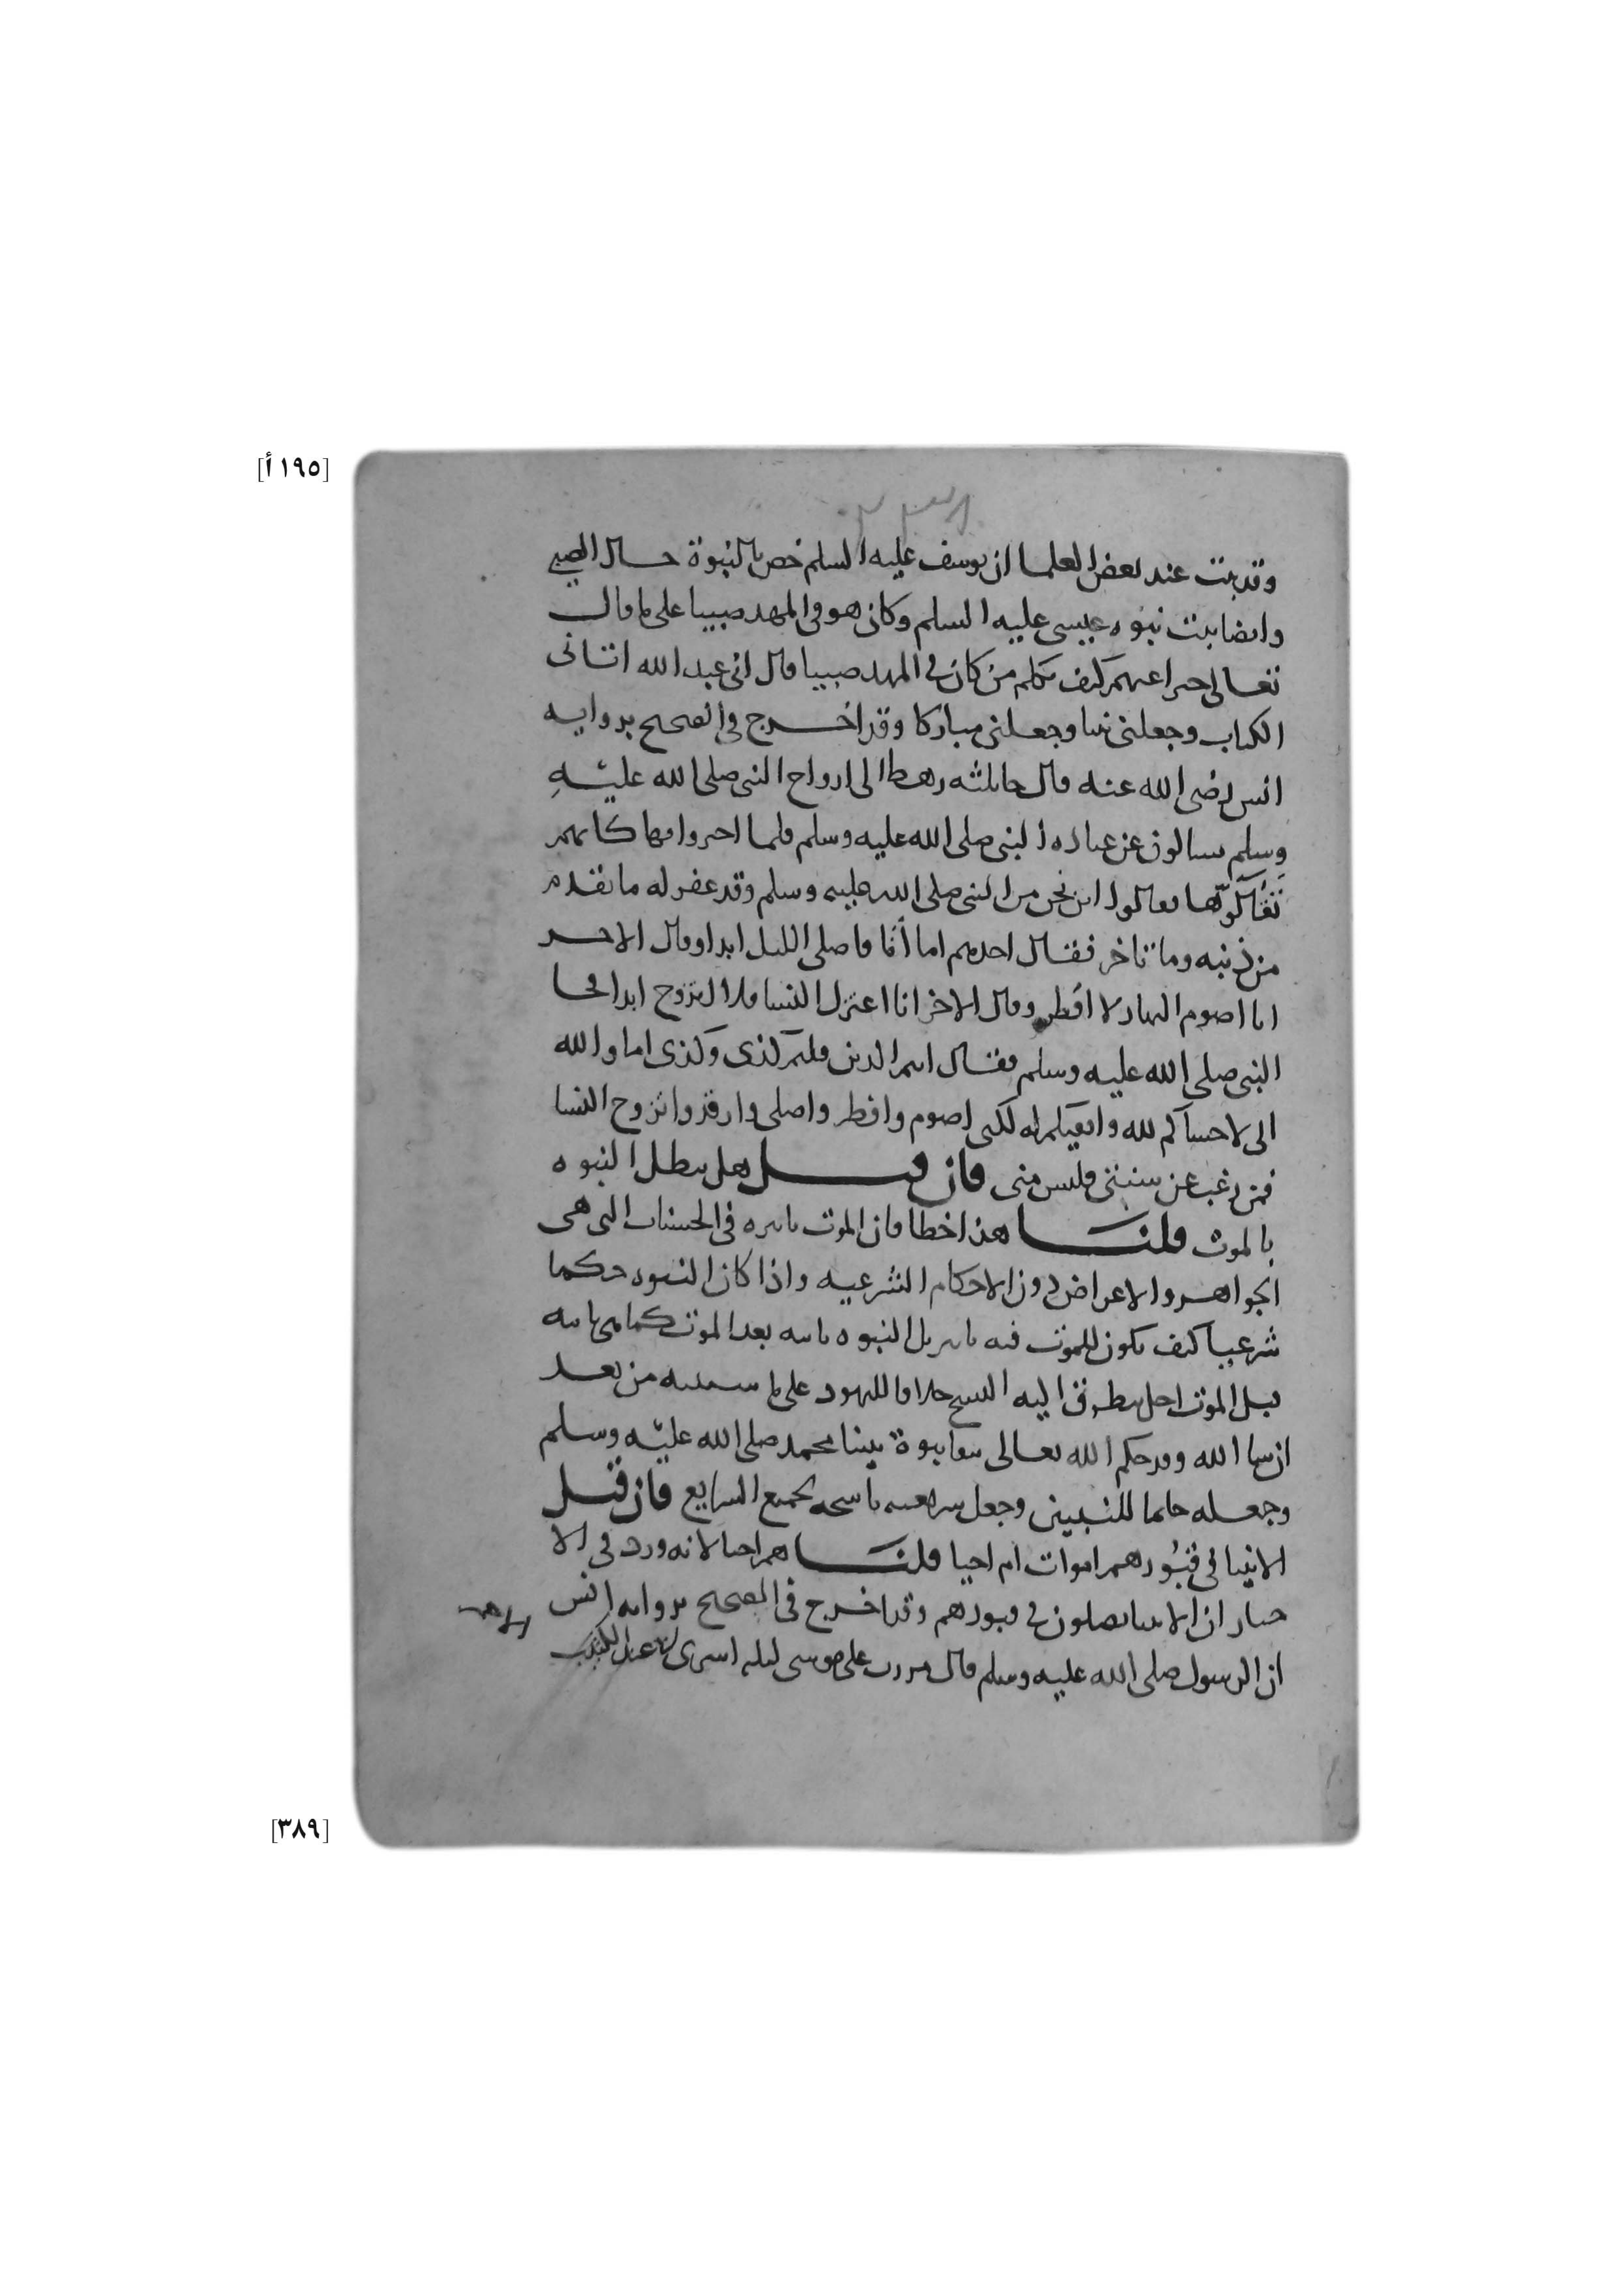 [١٩٥ أ]
وقد ثبت عند بعض العلما ان يوسف عليه السلم خص بالنبوة حال الصبى
وايضا ثبت نبوه عيسى عليه السلم وكان هو فى المهد صبيا على ما قال
تعالى خبرا عنهم كيف نكلم من كان فى المهد صبيا قال انى عبد الله اتانى
الكتاب وجعلنى نبيا وجعلنى مباركا وقد اخرج فى الصحيح بروايه
انس رضى الله عنه قال جا ثلثه رهط الى ازواج النبى صلى الله عليه
وسلم يسالون عن عباده النبى صلى الله عليه وسلم فلما اخبروا بها كانهم
تقالوها فقالوا اين نحن من النبى صلى الله عليه وسلم وقد غفر له ما تقدم
من ذنبه وما تاخر فقال احدهم اما أنا فاصلى الليل ابدا وقال الاخر
انا اصوم النهار لا افطر وقال الاخر انا اعتزل النسا فلا اتزوج ابدا فجا
النبى صلى الله عليه وسلم فقال انتم الذين قلتم كذى وكذى اما والله
انى لاخشاكم لله واتقيكم له لكنى اصوم وافطر واصلى وارقد واتزوج النسا
فمن رغب عن سنتى فليس منى فان قيل هل يبطل النبوه
بالموت قلنا هذا خطا فان الموت تاثيره فى الحسيات التى هى
الجواهر والاعراض دون الاحكام الشرعيه واذا كان النبوه حكما
شرعيا كيف يكون للموت فيه تاثير بل النبوه ثابته بعد الموت كما هى ثابته
قبل الموت اجل يتطرق اليه النسخ خلافا لليهود على ما سنبينه من بعد
ان شا الله وقد حكم الله تعالى ببقا نبوة نبينا محمد صلى الله عليه وسلم
وجعله خاتما للنبيين وجعل شريعته ناسخه لجميع الشرايع فان قيل
الانبيا فى قبورهم اموات ام احيا قلنا هم احيا لانه ورد فى الا
خبار ان الانبيا يصلون فى قبورهم وقد اخرج فى الصحيح بروايه انس
ان الرسول صلى الله عليه وسلم قال مررت على موسى ليله اسرى بى عند الكثيب
[٣٨٩]